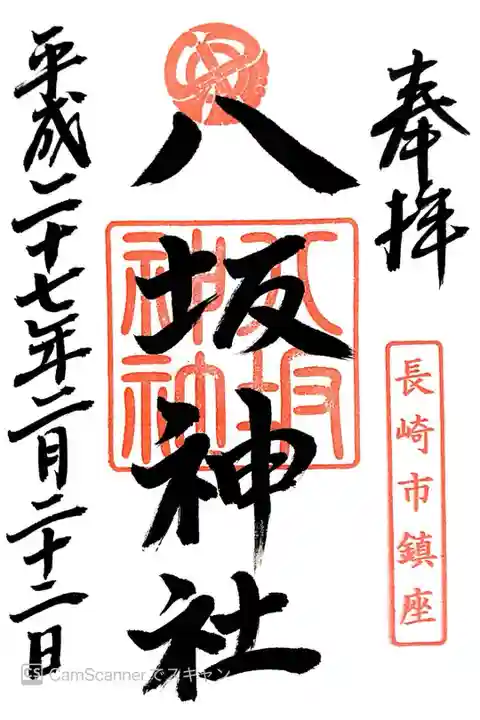 奉拝
長崎市鎮座
八坂神社
八坂神社
平成二十七年二月二十二日
CS CamScannerでスキャン